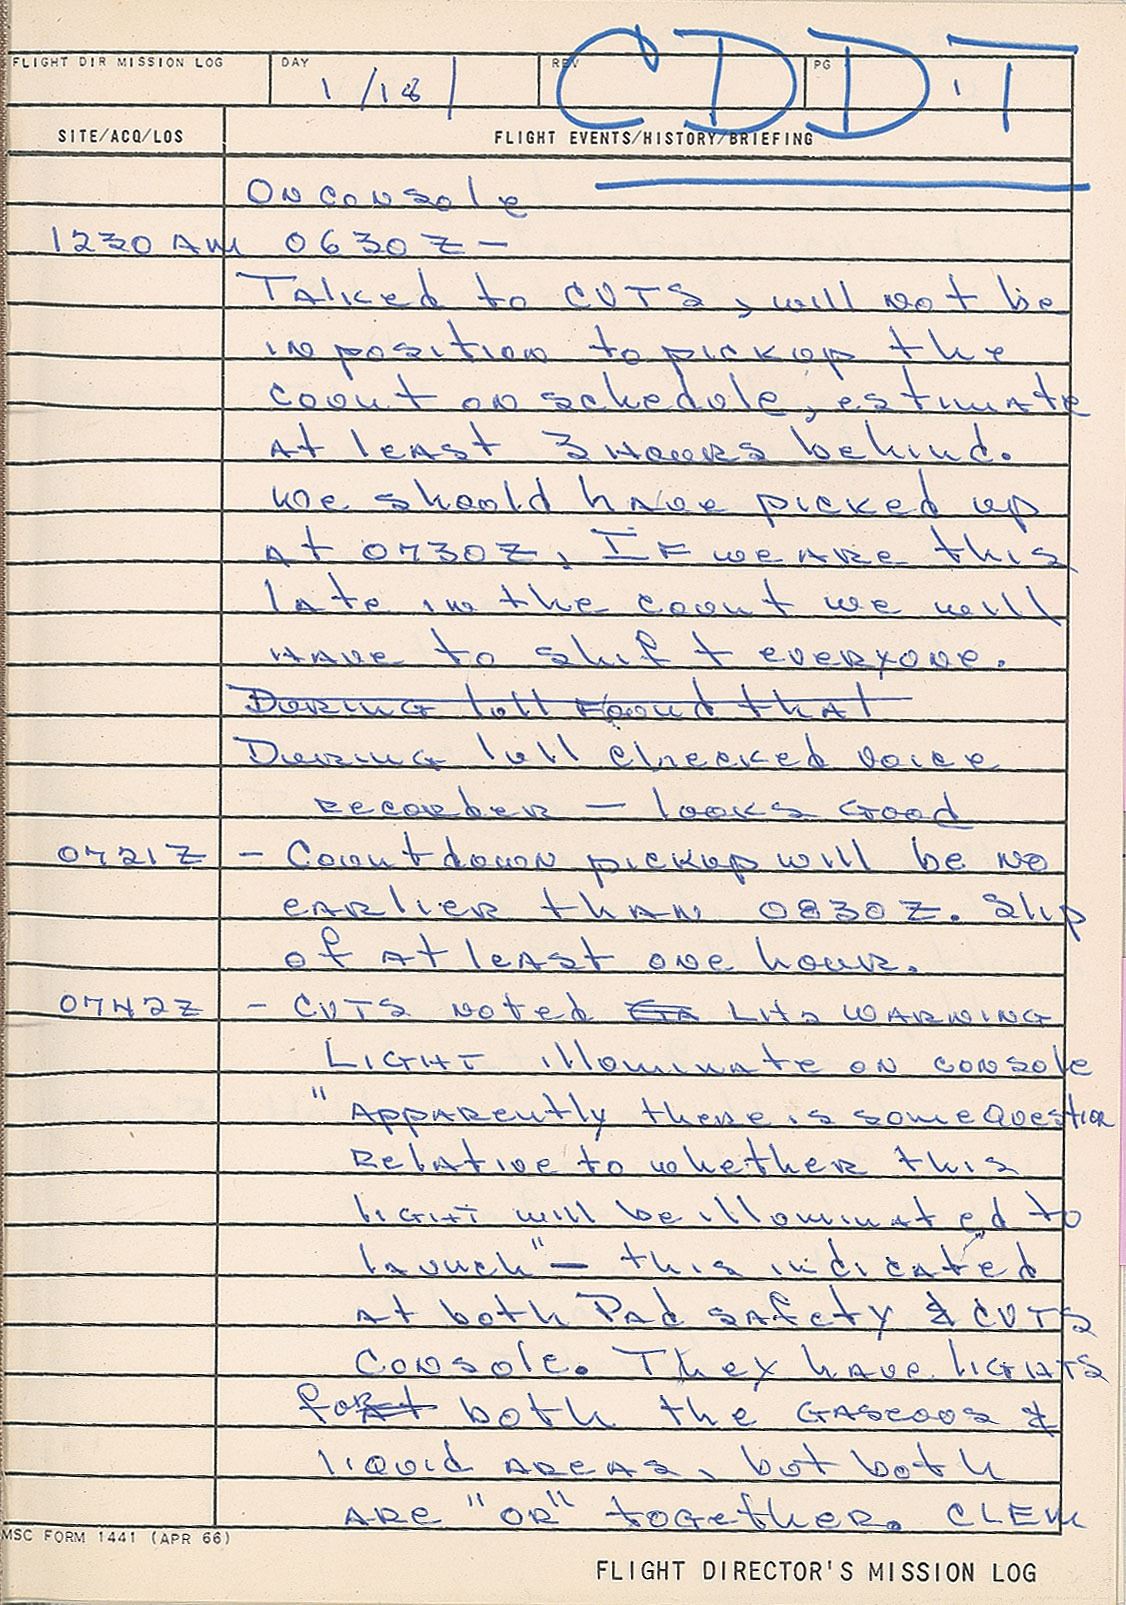 FLIGHT DIR MISSION LOG DAY 1/18 REV CDDT PG 1
SITE/ACQ/LOS FLIGHT EVENTS/HISTORY/BRIEFING
ON CONSOLE
1230 AM 0630Z -
Talked to CVTS, will not be
in position to pickup the
count on schedule, estimate
at least 3 hours behind.
We should have picked up
at 0730Z, IF we are this
late in the count we will
have to shift everyone.
During lull found that
During lull checked voice
recorder - looks good
0721Z - Countdown pickup will be no
earlier than 0830Z. Slip
of at least one hour.
0742Z - CVTS noted GA LH2 WARNING
LIGHT illuminate on console
"Apparently there is some question
relative to whether this
light will be illuminated to
launch" - this indicated
at both Pad safety & CVTS
console. They have lights
for both the gaseous &
liquid areas, but both
are "OR" together. CLEM
MSC FORM 1441 (APR 66)
FLIGHT DIRECTOR'S MISSION LOG